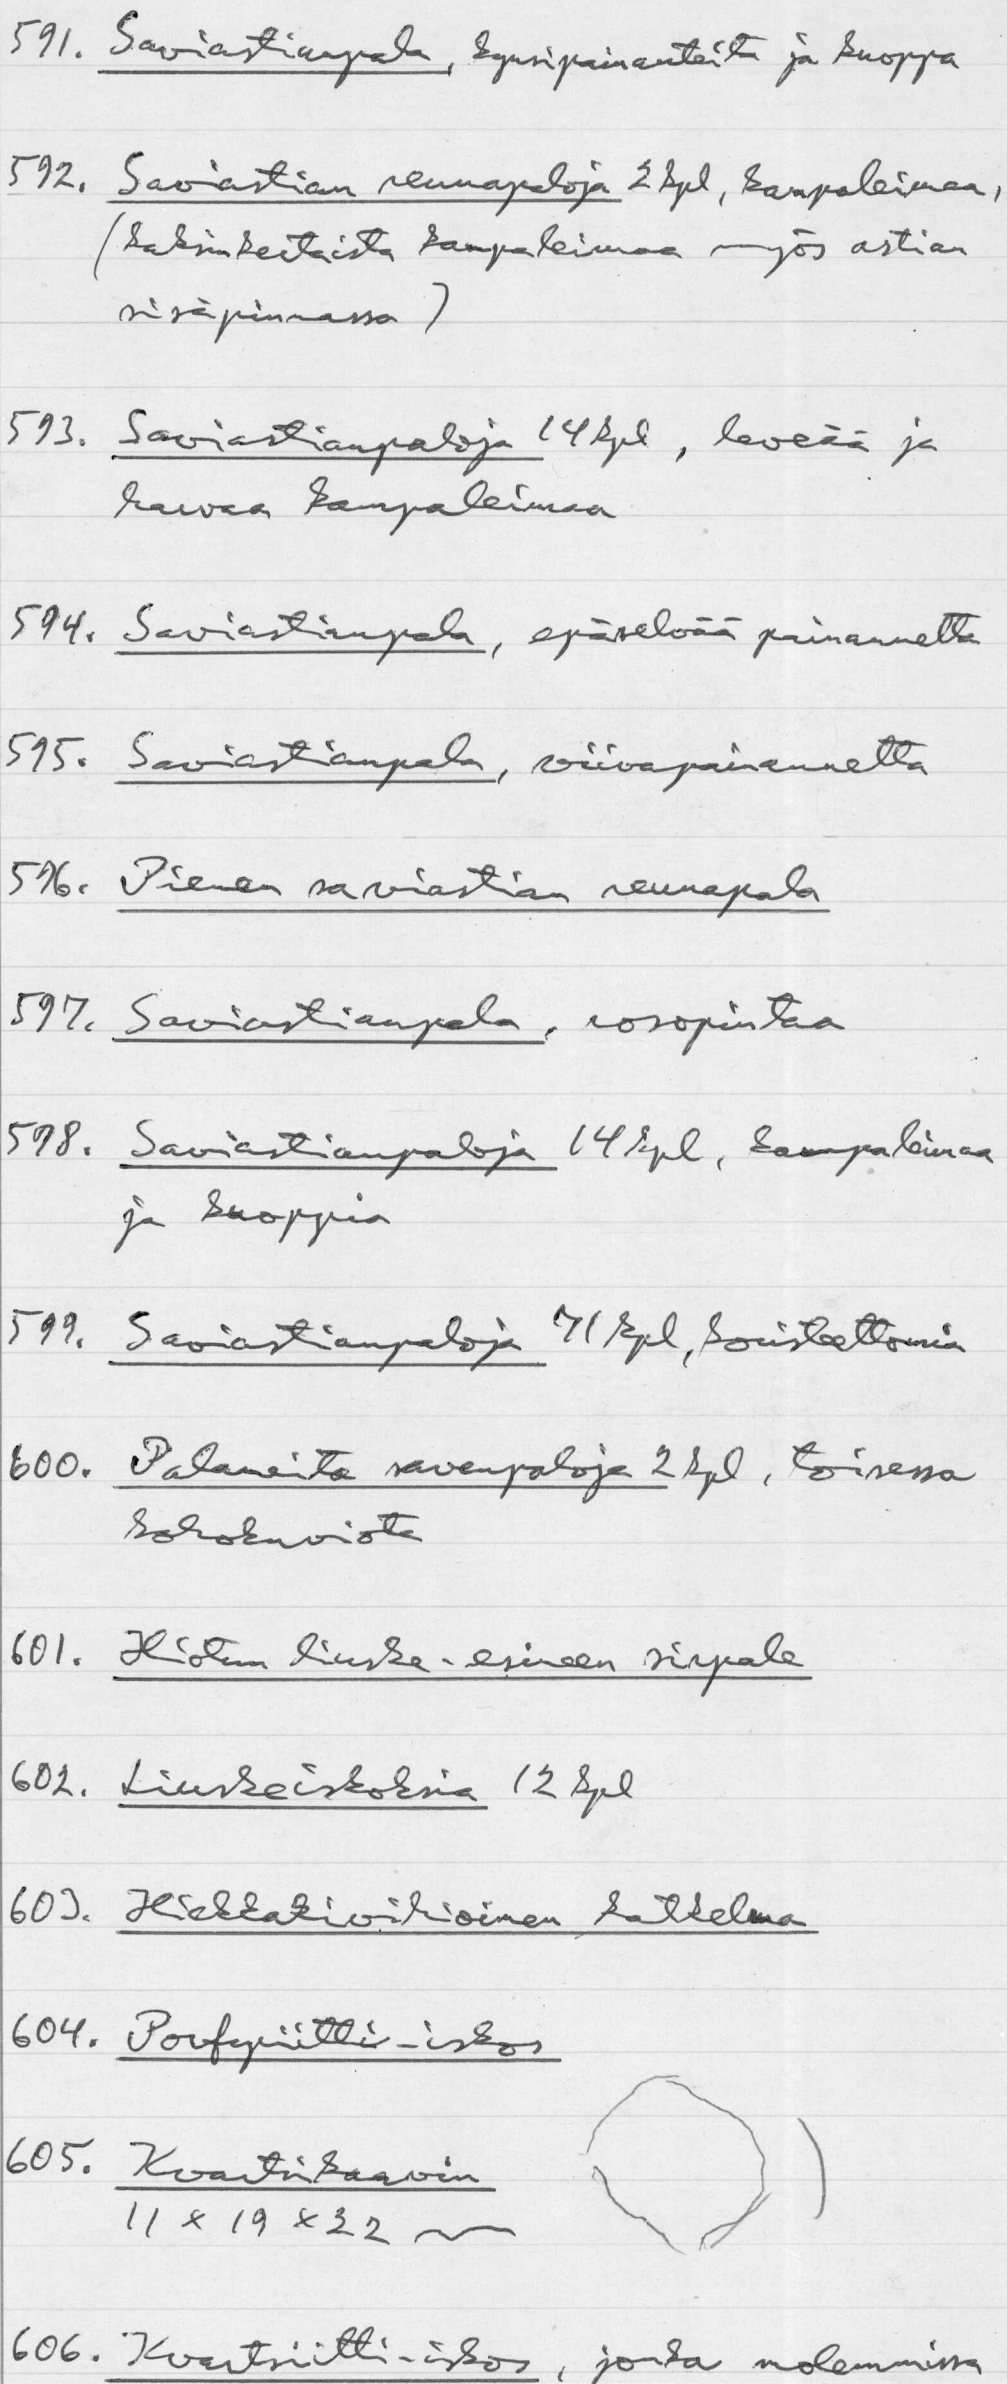 591. Saviastianpala, kynsipainanteita ja kuoppa
592. Saviastian reunapaloja 2 kpl, kampaleimaa,
(kaksinkertaista kampaleimaa myös astian
sisäpinnassa)
593. Saviastianpaloja 14 kpl, leveää ja
harvaa kampaleimaa
594. Saviastianpala, epäselvää painannetta
595. Saviastianpala, viivapainannetta
596. Pienen saviastian reunapala
597. Saviastianpala, rosopintaa
598. Saviastianpaloja 14 kpl, kampaleimaa
ja kuoppia
599. Saviastianpaloja 71 kpl, koristeettomia
600. Palaneita savenpaloja 2 kpl, toisessa
kohokuviota
601. Hiotun liuske-esineen sirpale
602. Liuskeiskoksia 12 kpl
603. Hiekkakivihioimen katkelma
604. Porfyriitti-iskos
605. Kvartsikaavin
11 x 19 x 22 mm
606. Kvartsiitti-iskos, jonka molemmissa